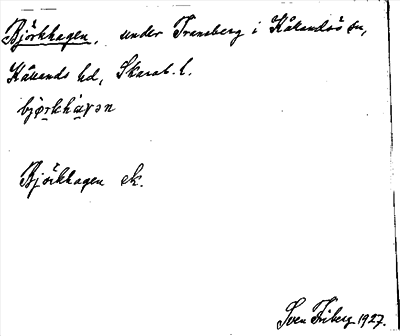 Björkhagen, under Transberg i Kållandsö sn,
Kållands hd, Skarab. l.
bjørkhàγən
Björkhagen ek.
Sven Friberg 1927.